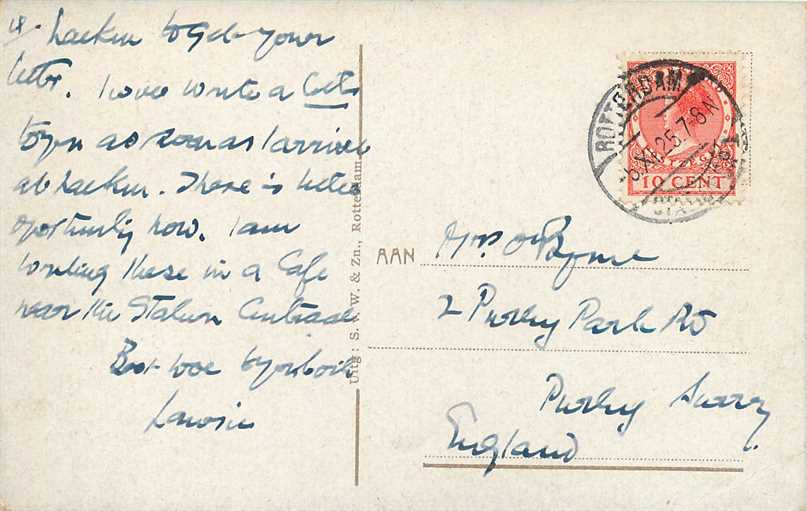 Laeken to get your
letter. I will write a letter
to you as soon as I arrive
at Laeken. There is little
oportunity now. I am
writing these in a Cafe
near the Station Centraal
Best love to you both
ROTTERDAM
XI.25.7-8N
10 CENT
AAN
Mrs O'Byrne
2 Purley Park Rd
Purley Surrey
England
Uitg: S. &. W. & Zn., Rotterdam